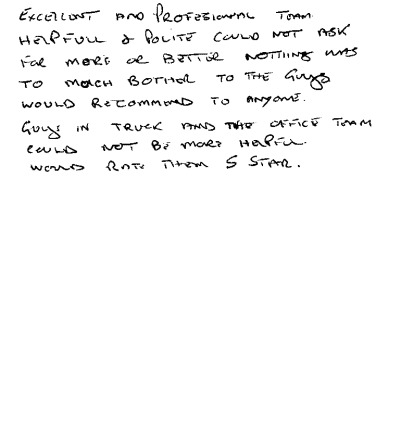 EXCELLENT AND PROFESSIONAL TEAM
HELPFULL & POLITE COULD NOT ASK
FOR MORE OR BETTER NOTHING WAS
TO MUCH BOTHER TO THE GUYS
WOULD RECOMMEND TO ANYONE.
GUYS IN TRUCK AND THE OFFICE TEAM
COULD NOT BE MORE HELPFUL.
WOULD RATE THEM 5 STAR.